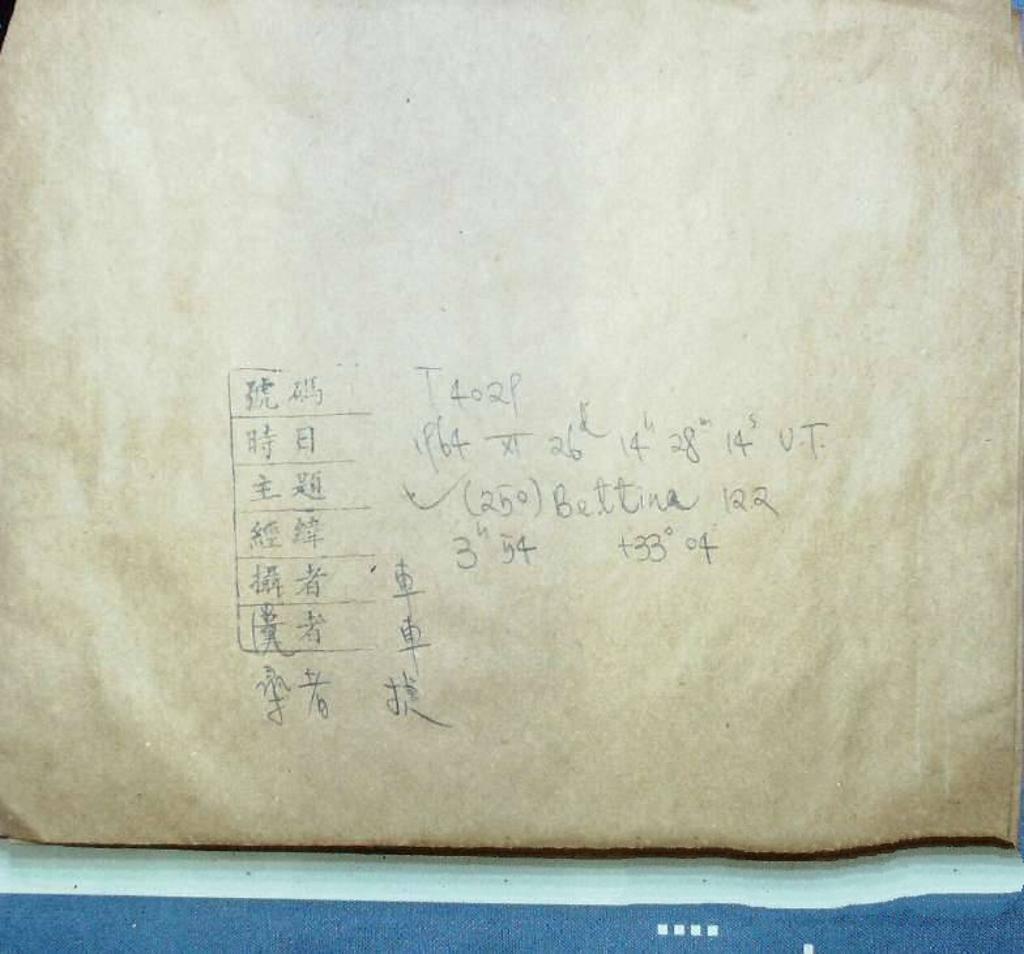 號碼 T 4029
時日 1964 XI 26d 14h 28m 14s U.T.
主題 ✓ (250) Bettina 12.2
經緯 3h 54 +33° 04
攝者 車
者 車
者 捷